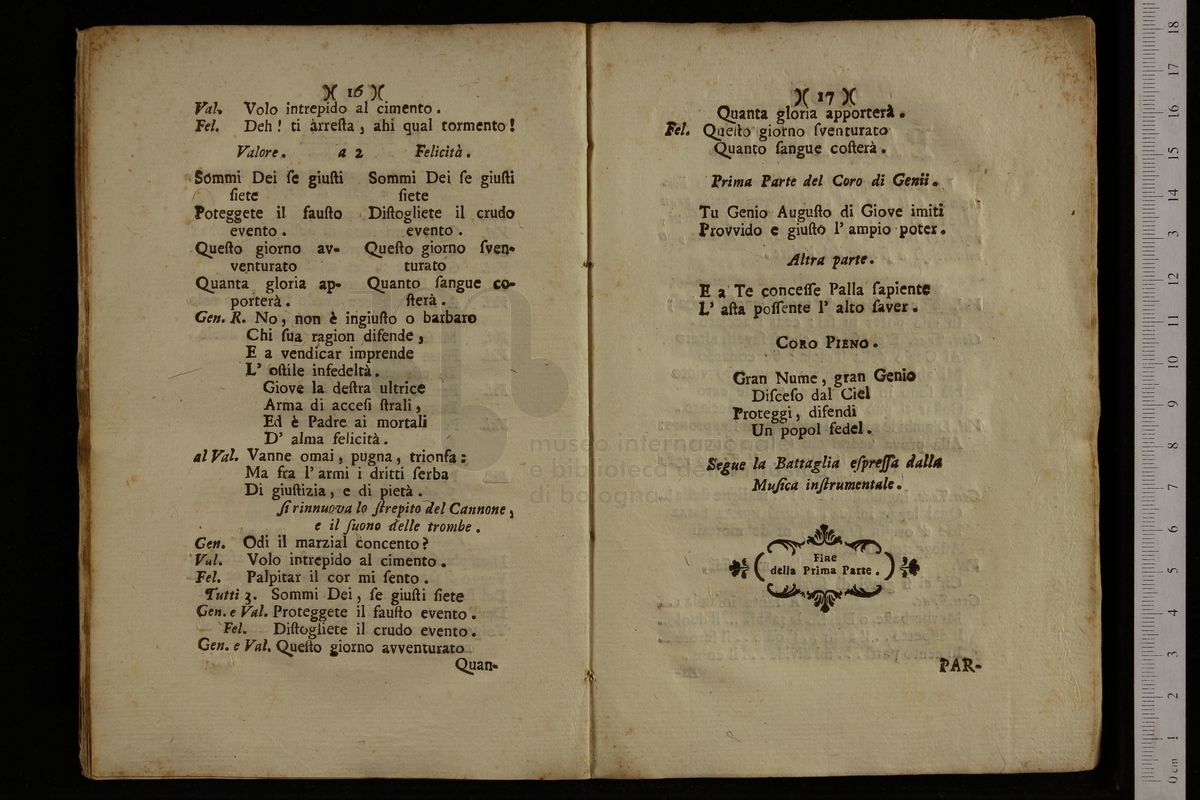 )( 16 )(
Val. Volo intrepido al cimento.
Fel. Deh! ti arresta, ahi qual tormento!
Valore. a 2 Felicità.
Sommi Dei se giusti
siete
Poteggete il fausto
evento.
Questo giorno av-
venturato
Quanta gloria ap-
porterà.
Sommi Dei se giusti
siete
Distogliete il crudo
evento.
Questo giorno sven-
turato
Quanto sangue co-
sterà.
Gen. R. No, non è ingiusto o barbaro
Chi sua ragion difende,
E a vendicar imprende
L' ostile infedeltà.
Giove la destra ultrice
Arma di accesi strali,
Ed è Padre ai mortali
D' alma felicità.
al Val. Vanne omai, pugna, trionfa:
Ma fra l' armi i dritti serba
Di giustizia, e di pietà.
si rinnuova lo strepito del Cannone,
e il suono delle trombe.
Gen. Odi il marzial concento?
Val. Volo intrepido al cimento.
Fel. Palpitar il cor mi sento.
Tutti 3. Sommi Dei, se giusti siete
Gen. e Val. Proteggete il fausto evento.
Fel. Distogliete il crudo evento.
Gen. e Val. Questo giorno avventurato
Quan-
)( 17 )(
Quanta gloria apporterà.
Fel. Questo giorno sventurato
Quanto sangue costerà.
Prima Parte del Coro di Genii.
Tu Genio Augusto di Giove imiti
Provvido e giusto l' ampio poter.
Altra parte.
E a Te concesse Palla sapiente
L' asta possente l' alto saver.
CORO PIENO.
Gran Nume, gran Genio
Disceso dal Ciel
Proteggi, difendi
Un popol fedel.
Segue la Battaglia espressa dalla
Musica instrumentale.
Fine
della Prima Parte.
PAR-
museo internazionale
e biblioteca de
di bologna
0 cm 1 2 3 4 5 6 7 8 9 10 11 12 13 14 15 16 17 18